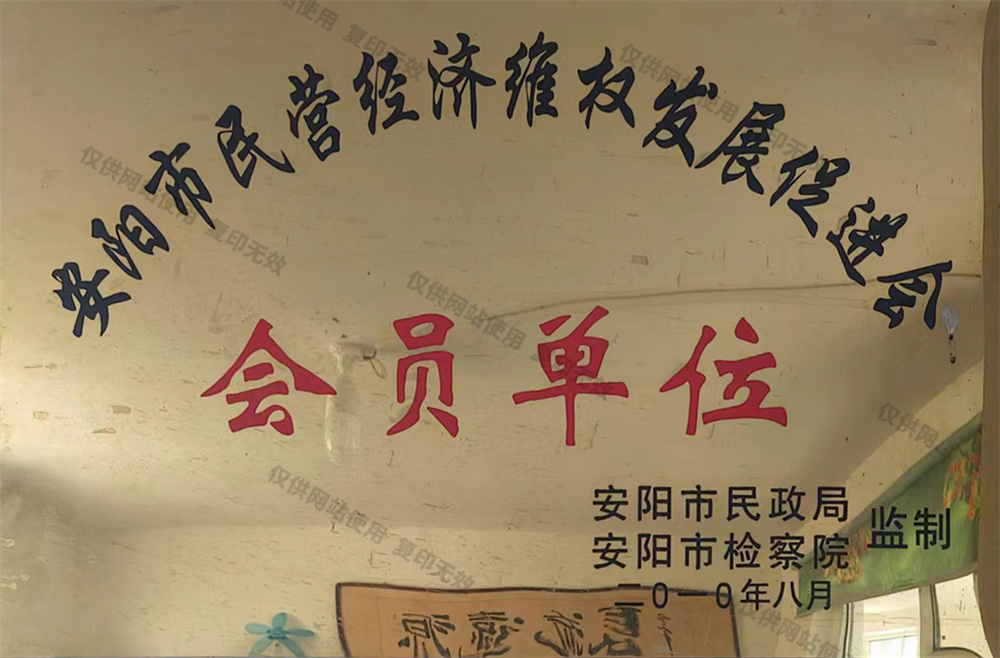 安阳市民营经济维权发展促进会
会员单位
安阳市民政局
安阳市检察院
监制
二0一0年八月
仅供网站使用 复印无效
仅供网站使用 复印无效
仅供网站使用
仅供网站使用 复印无效
仅供网站使用
仅供网
仅供网站使用